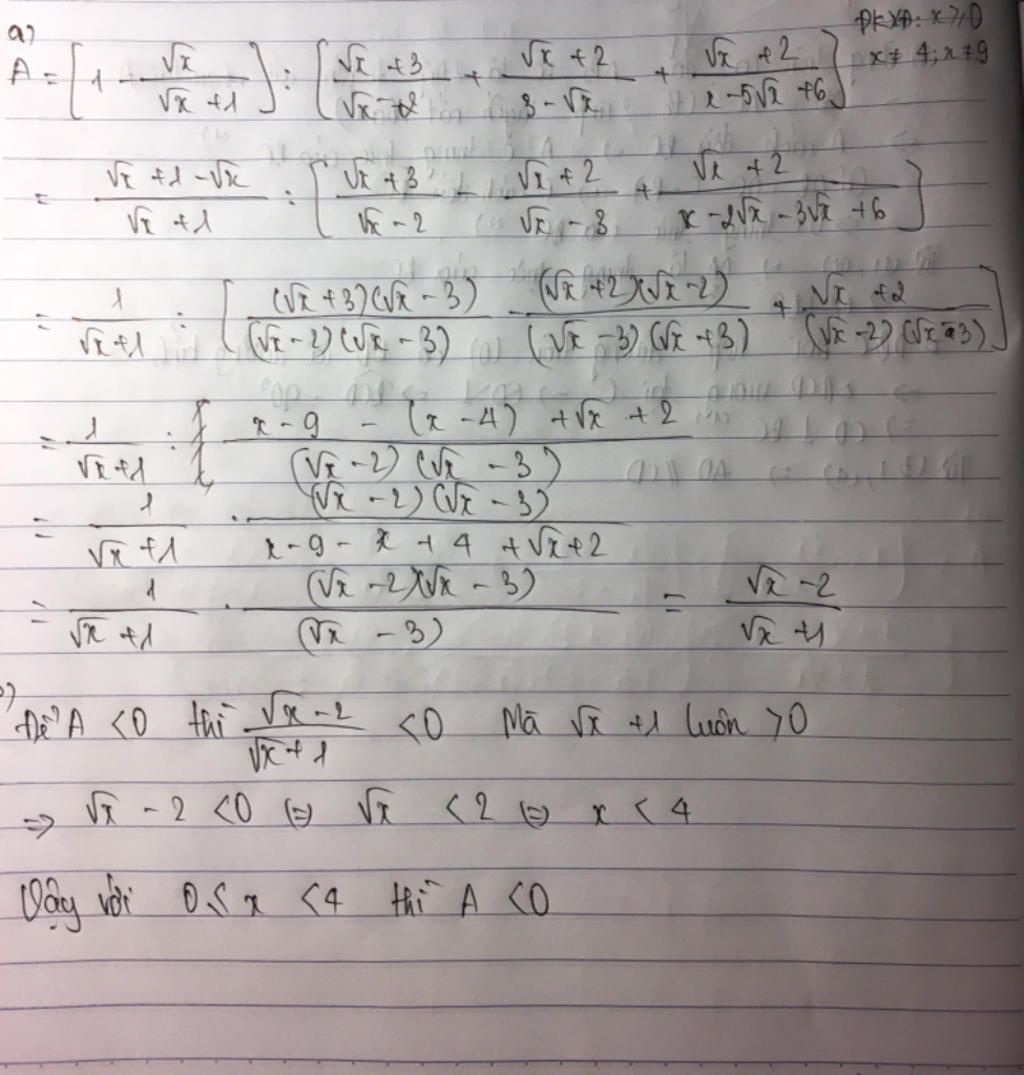 a)
ĐKXĐ: x ≥ 0
x ≠ 4; x ≠ 9
A = [1 - √x / (√x + 1)] : [(√x + 3)/(√x - 2) + (√x + 2)/(3 - √x) + (√x + 2)/(x - 5√x + 6)]
= (√x + 1 - √x)/(√x + 1) : [(√x + 3)/(√x - 2) - (√x + 2)/(√x - 3) + (√x + 2)/(x - 2√x - 3√x + 6)]
= 1/(√x + 1) : [(√x + 3)(√x - 3)/((√x - 2)(√x - 3)) - (√x + 2)(√x - 2)/((√x - 3)(√x + 3)) + (√x + 2)/((√x - 2)(√x - 3))]
= 1/(√x + 1) : (x - 9 - (x - 4) + √x + 2)/((√x - 2)(√x - 3))
= 1/(√x + 1) . (√x - 2)(√x - 3)/(x - 9 - x + 4 + √x + 2)
= 1/(√x + 1) . (√x - 2)(√x - 3)/(√x - 3) = (√x - 2)/(√x + 1)
b)
Để A < 0 thì (√x - 2)/(√x + 1) < 0 Mà √x + 1 luôn > 0
⇒ √x - 2 < 0 ⇔ √x < 2 ⇔ x < 4
Vậy với 0 ≤ x < 4 thì A < 0